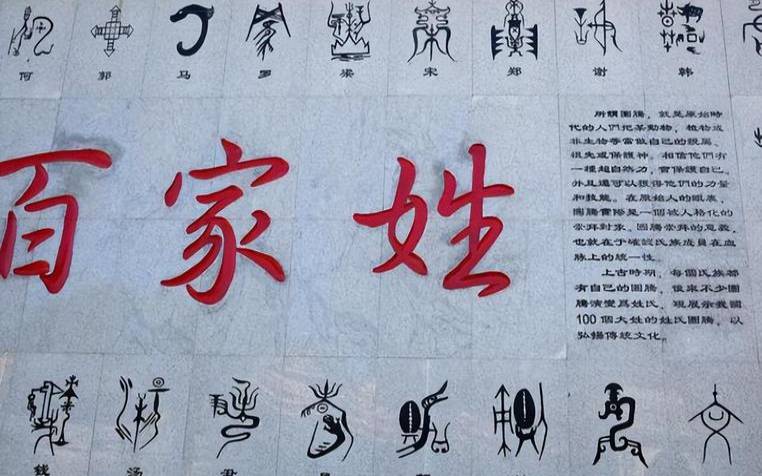 何 郭 马 罗 梁 宋 郑 谢 韩
百家姓
所謂圖騰，就是原始時
代的人們把某動物，植物或
非生物等當做自己的親屬、
祖先或保護神。相信他們有
一種超自然力，會保護自己，
并且還可以獲得他們的力量
和技能。在原始人的眼裹，
圖騰實際是一個被人格化的
崇拜對象。圖騰崇拜的意義，
也就在于確認氏族成員在血
脉上的統一性。
上古時期，每個氏族都
有自己的圖騰，後來不少圖
騰演變爲姓氏，現展示我國
100個大姓的姓氏圖騰，以
弘揚傳統文化。
钱 汤 尹